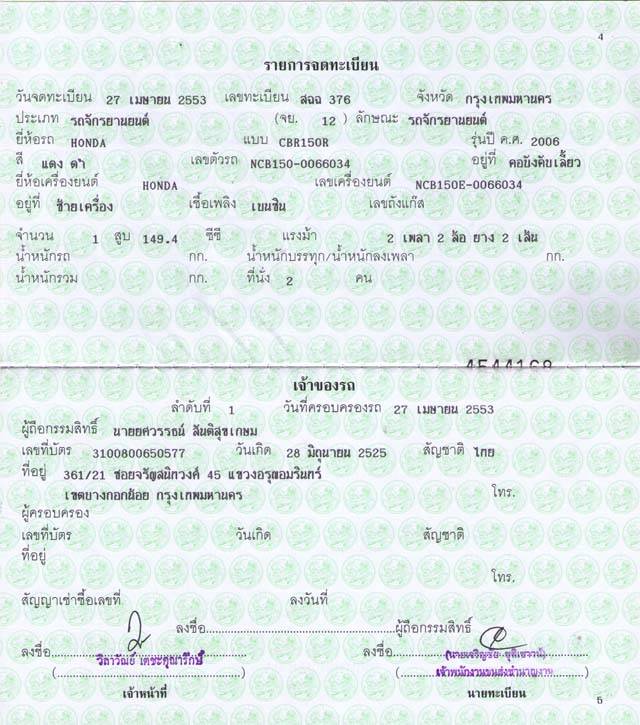 4
รายการจดทะเบียน
วันจดทะเบียน 27 เมษายน 2553 เลขทะเบียน สฉฉ 376 จังหวัด กรุงเทพมหานคร
ประเภท รถจักรยานยนต์ (จย. 12 ) ลักษณะ รถจักรยานยนต์
ยี่ห้อรถ HONDA แบบ CBR150R รุ่นปี ค.ศ. 2006
สี แดง ดำ เลขตัวรถ NCB150-0066034 อยู่ที่ คอบังคับเลี้ยว
ยี่ห้อเครื่องยนต์ HONDA เลขเครื่องยนต์ NCB150E-0066034
อยู่ที่ ซ้ายเครื่อง เชื้อเพลิง เบนซิน เลขถังแก๊ส
จำนวน 1 สูบ 149.4 ซีซี แรงม้า 2 เพลา 2 ล้อ ยาง 2 เส้น
น้ำหนักรถ กก. น้ำหนักบรรทุก/น้ำหนักลงเพลา กก.
น้ำหนักรวม กก. ที่นั่ง 2 คน
4544168
เจ้าของรถ
ลำดับที่ 1 วันที่ครอบครองรถ 27 เมษายน 2553
ผู้ถือกรรมสิทธิ์ นายยศวรรธน์ สันติสุขเกษม
เลขที่บัตร 3100800650577 วันเกิด 28 มิถุนายน 2525 สัญชาติ ไทย
ที่อยู่ 361/21 ซอยจรัญสนิทวงศ์ 45 แขวงอรุณอมรินทร์
เขตบางกอกน้อย กรุงเทพมหานคร โทร.
ผู้ครอบครอง
เลขที่บัตร วันเกิด สัญชาติ
ที่อยู่
โทร.
สัญญาเช่าซื้อเลขที่ ลงวันที่
ลงชื่อ ผู้ถือกรรมสิทธิ์
ลงชื่อ ลงชื่อ
วิลาวัณย์ เดชะคุณารักษ์
เจ้าพนักงานขนส่งชำนาญงาน
เจ้าหน้าที่ นายทะเบียน
5